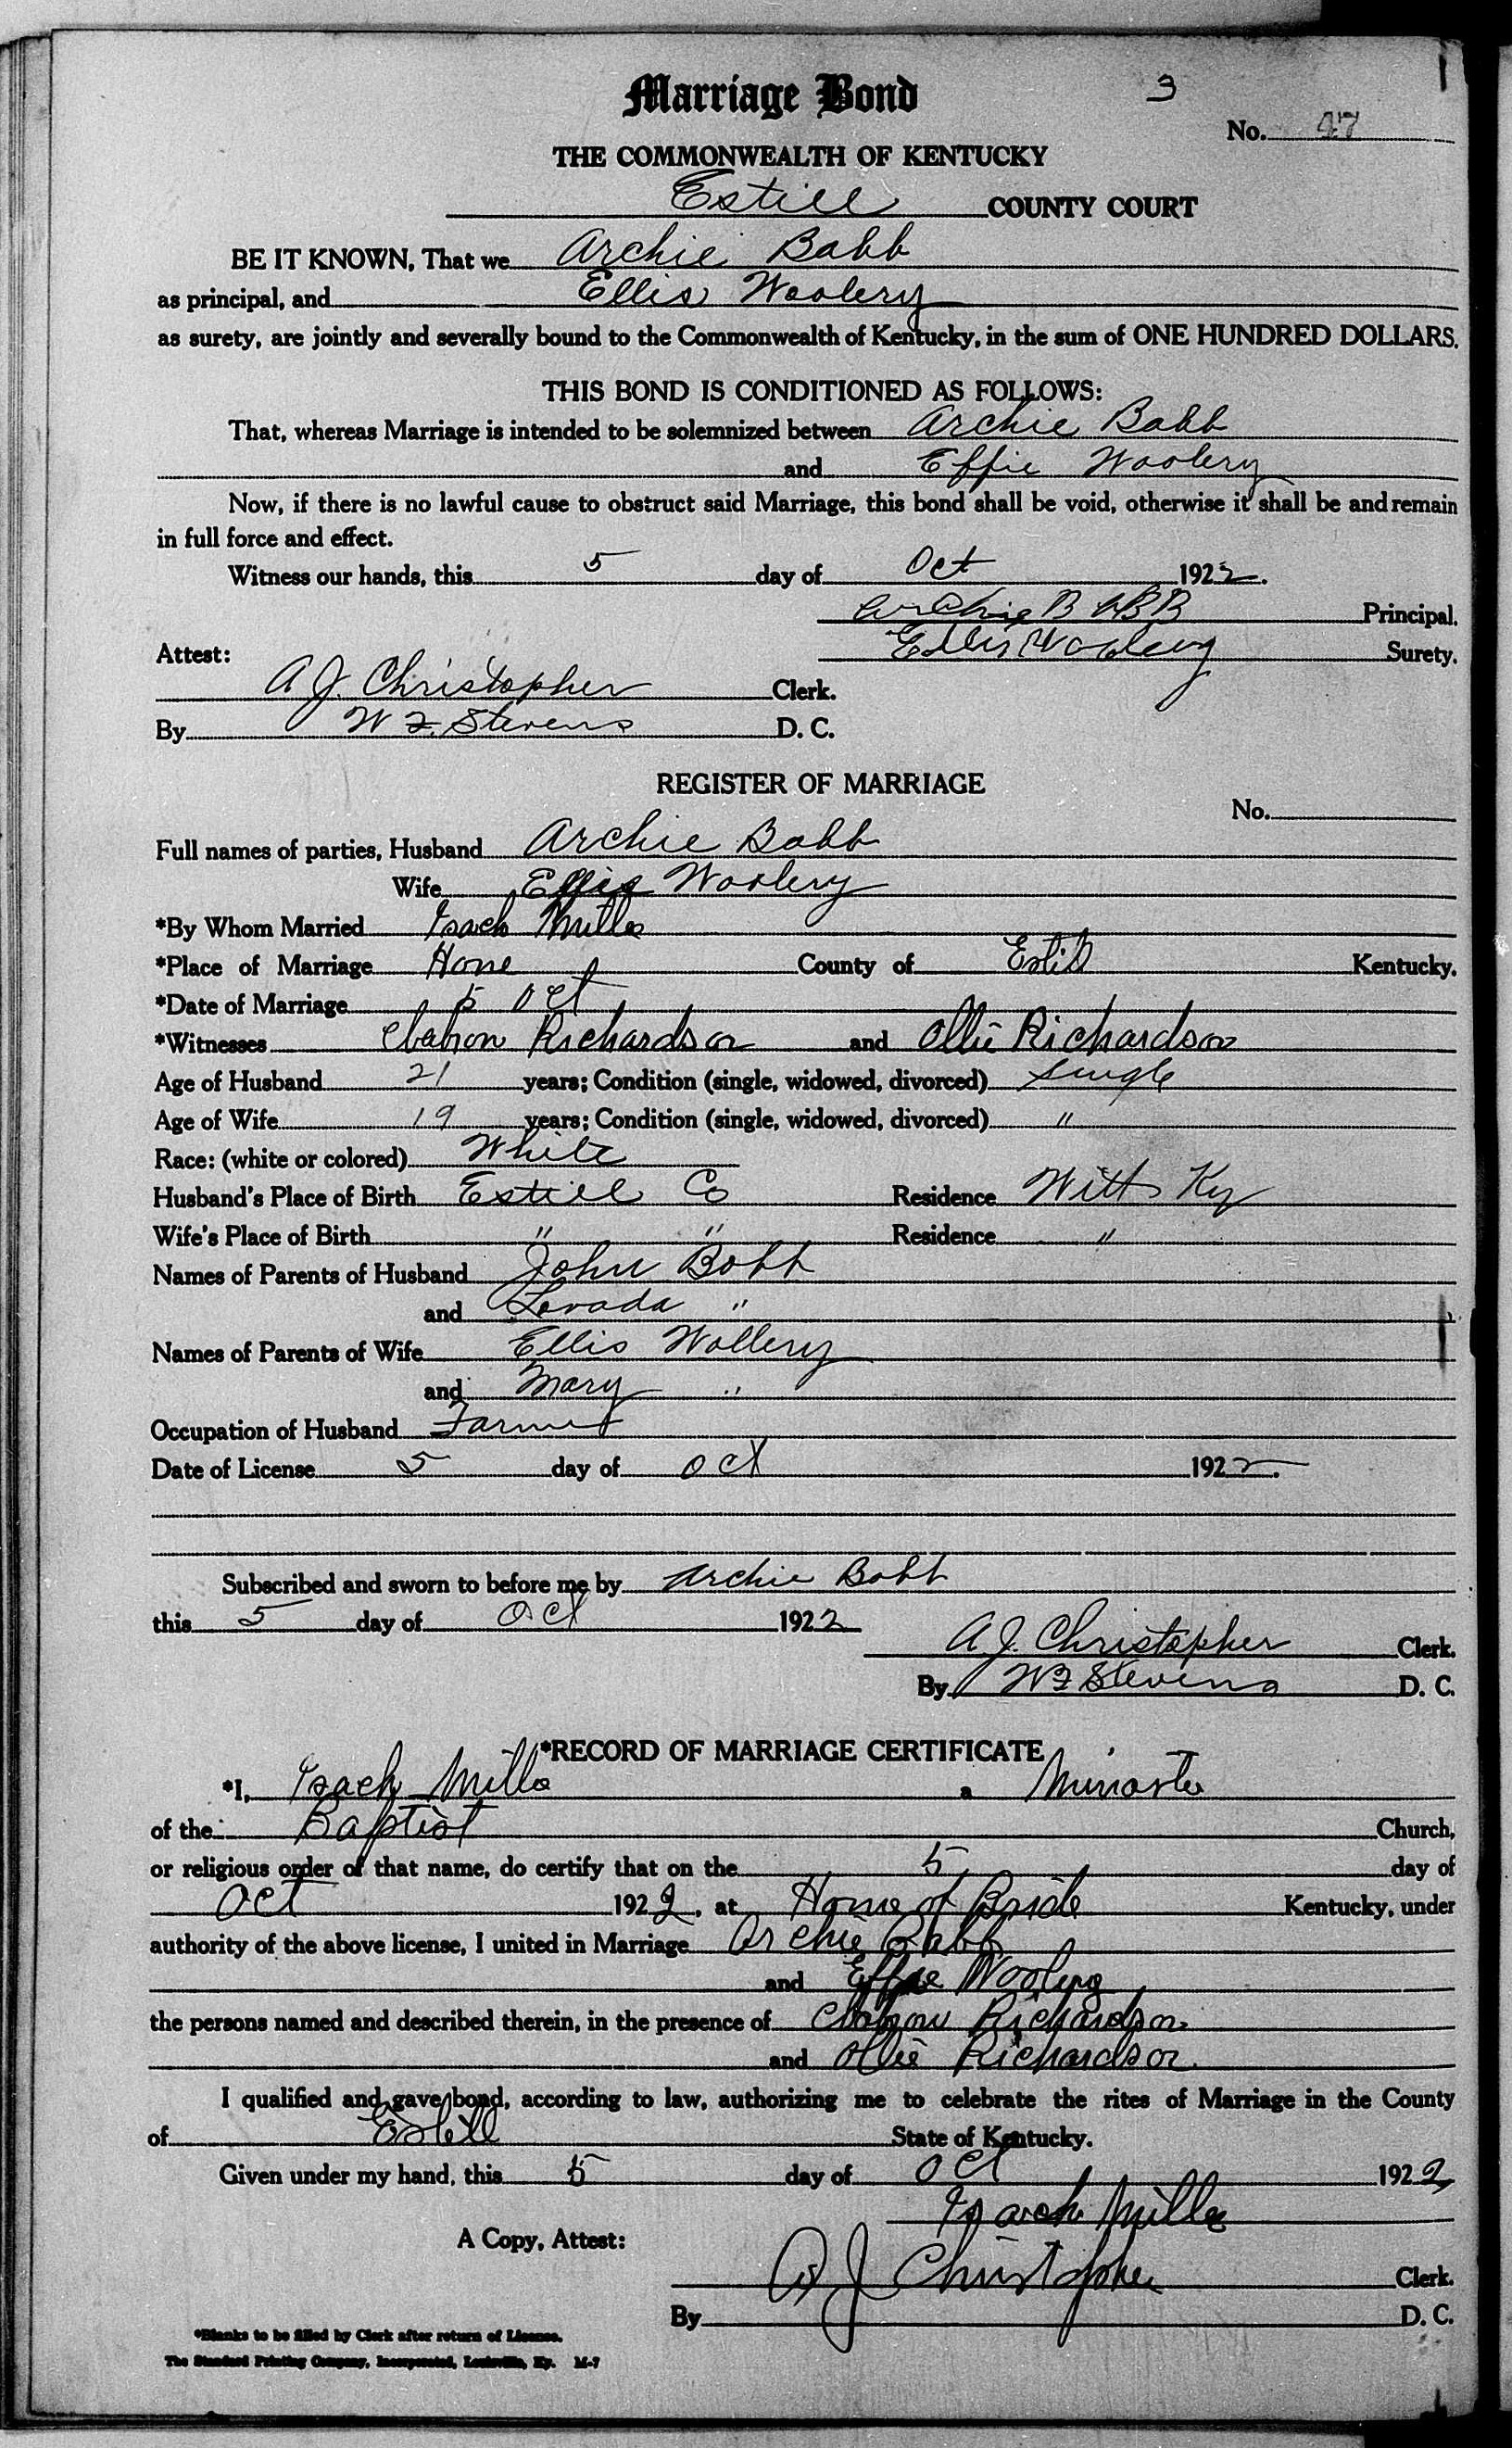 Marriage Bond
3
No. 47
THE COMMONWEALTH OF KENTUCKY
Estill COUNTY COURT
BE IT KNOWN, That we Archie Babb
as principal, and Ellis Woolery
as surety, are jointly and severally bound to the Commonwealth of Kentucky, in the sum of ONE HUNDRED DOLLARS.
THIS BOND IS CONDITIONED AS FOLLOWS:
That, whereas Marriage is intended to be solemnized between Archie Babb
and Effie Woolery
Now, if there is no lawful cause to obstruct said Marriage, this bond shall be void, otherwise it shall be and remain
in full force and effect.
Witness our hands, this 5 day of Oct 1922.
Archie BABB Principal.
Attest: Ellis Woolery Surety.
A J. Christopher Clerk.
By W F. Stevens D. C.
REGISTER OF MARRIAGE
No.
Full names of parties, Husband Archie Babb
Wife Effie Woolery
*By Whom Married Isach Mills
*Place of Marriage Home County of Estill Kentucky.
*Date of Marriage 5 Oct
*Witnesses Richardson and Ollie Richardson
Age of Husband 21 years; Condition (single, widowed, divorced) Single
Age of Wife 19 years; Condition (single, widowed, divorced) "
Race: (white or colored) White
Husband's Place of Birth Estill Co Residence Witts Ky
Wife's Place of Birth " " Residence "
Names of Parents of Husband John Babb
and Levada "
Names of Parents of Wife Ellis Wollery
and Mary "
Occupation of Husband Farmer
Date of License 5 day of Oct 1922.
Subscribed and sworn to before me by Archie Babb
this 5 day of Oct 1922
A.J. Christopher Clerk.
By W F Stevens D. C.
*RECORD OF MARRIAGE CERTIFICATE
*I, Isach Mills a Minaster
of the Baptist Church,
or religious order of that name, do certify that on the 5 day of
Oct 1922, at Home of Bride Kentucky, under
authority of the above license, I united in Marriage Archie Babb
and Effie Woolery
the persons named and described therein, in the presence of Richardson
and Ollie Richardson.
I qualified and gave bond, according to law, authorizing me to celebrate the rites of Marriage in the County
of Estill State of Kentucky.
Given under my hand, this 5 day of Oct 1922
Isach Mills
A Copy, Attest:
A J Christopher Clerk.
By D. C.
*Blanks to be filled by Clerk after return of License.
The Standard Printing Company, Incorporated, Louisville, Ky. M-7